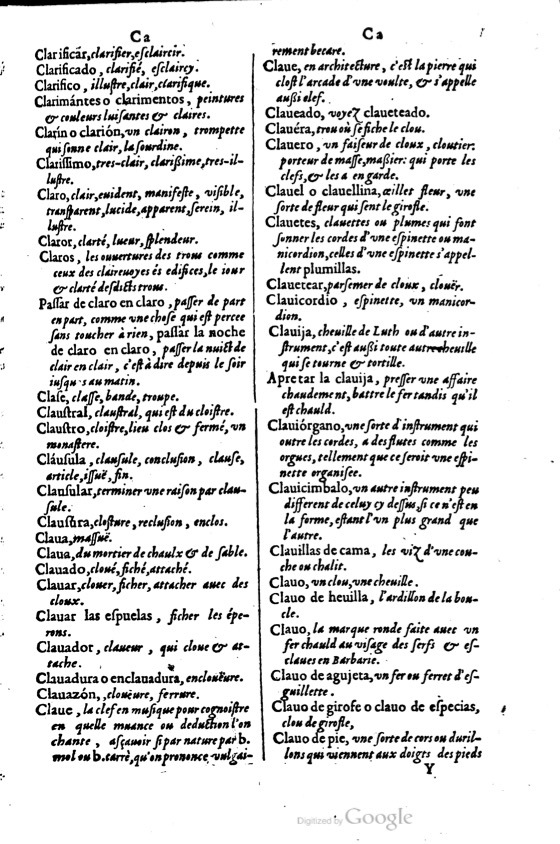 Ca
Clarificar, clarifier, esclaircir.
Clarificado, clarifié, esclaircy.
Clarifico, illustre, clair, clarifique.
Clarimántes o clarimentos, peintures
& couleurs luisantes & claires.
Clarín o clarión, vn clairon, trompette
qui sonne clair, la sourdine.
Clarissimo, tres-clair, clarißime, tres-il-
lustre.
Claro, clair, euident, manifeste, visible,
transparent, lucide, apparent, serein, il-
lustre.
Claror, clarté, lueur, splendeur.
Claros, les ouuertures des trous comme
ceux des clairevoyes és edifices, le iour
& clarté desdicts trous.
Passar de claro en claro, passer de part
en part, comme vne chose qui est percee
sans toucher à rien, passar la noche
de claro en claro, passer la nuict de
clair en clair, c'est à dire depuis le soir
iusqu's au matin.
Clase, classe, bande, troupe.
Claustral, claustral, qui est du cloistre.
Claustro, cloistre, lieu clos & fermé, vn
monastere.
Cláusula, clausule, conclusion, clause,
article, issuë, fin.
Clausular, terminer vne raison par clau-
sule.
Clausûra, closture, reclusion, enclos.
Claua, massuë.
Claua, du mortier de chaulx & de sable.
Clauado, cloué, fiché, attaché.
Clauar, clouer, ficher, attacher auec des
cloux.
Clauar las espuelas, ficher les épe-
rons.
Clauador, claueur, qui cloue & at-
tache.
Clauadura o enclauadura, encloüeure.
Clauazón, cloüeure, ferrure.
Claue, la clef en musique pour cognoistre
en quelle muance ou deduction l'on
chante, asçauoir si par nature par b.
mol ou b. carrè, qu'on prononce vulgai-
Ca
rement becare.
Claue, en architecture, c'est la pierre qui
clost l'arcade d'vne voulte, & s'appelle
außi clef.
Claueado, voyez claueteado.
Clauéra, trou où se fiche le clou.
Clauero, vn faiseur de cloux, cloutier.
porteur de masse, maßier: qui porte les
clefs, & les a en garde.
Clauel o clauellina, œillet fleur, vne
sorte de fleur qui sent le girofle.
Clauetes, clauettes ou plumes qui font
sonner les cordes d'vne espinette ou ma-
nicordion, celles d'vne espinette s'appel-
lent plumillas.
Clauetear, parsemer de cloux, clouër.
Clauicordio, espinette, vn manicor-
dion.
Clauija, cheuille de Luth ou d'autre in-
strument, c'est aussi toute autre cheuille
qui se tourne & tortille.
Apretar la clauija, presser vne affaire
chaudement, battre le fer tandis qu'il
est chauld.
Clauiórgano, vne sorte d'instrument qui
outre les cordes, a des flutes comme les
orgues, tellement que ce seroit vne espi-
nette organisee.
Clauicimbalo, vn autre instrument peu
different de celuy cy dessus, si ce n'est en
la forme, estant l'vn plus grand que
l'autre.
Clauillas de cama, les viz d'vne cou-
che ou chalit.
Clauo, vn clou, vne cheuille.
Clauo de heuilla, l'ardillon de la bou-
cle.
Clauo, la marque ronde faite auec vn
fer chauld au visage des serfs & es-
claues en Barbarie.
Clauo de agujeta, vn fer ou ferret d'es-
guillette.
Clauo de girofe o clauo de especias,
clou de girofle,
Clauo de pie, vne sorte de cors ou duril-
lons qui viennent aux doigts des pieds
Y
Digitized by Google